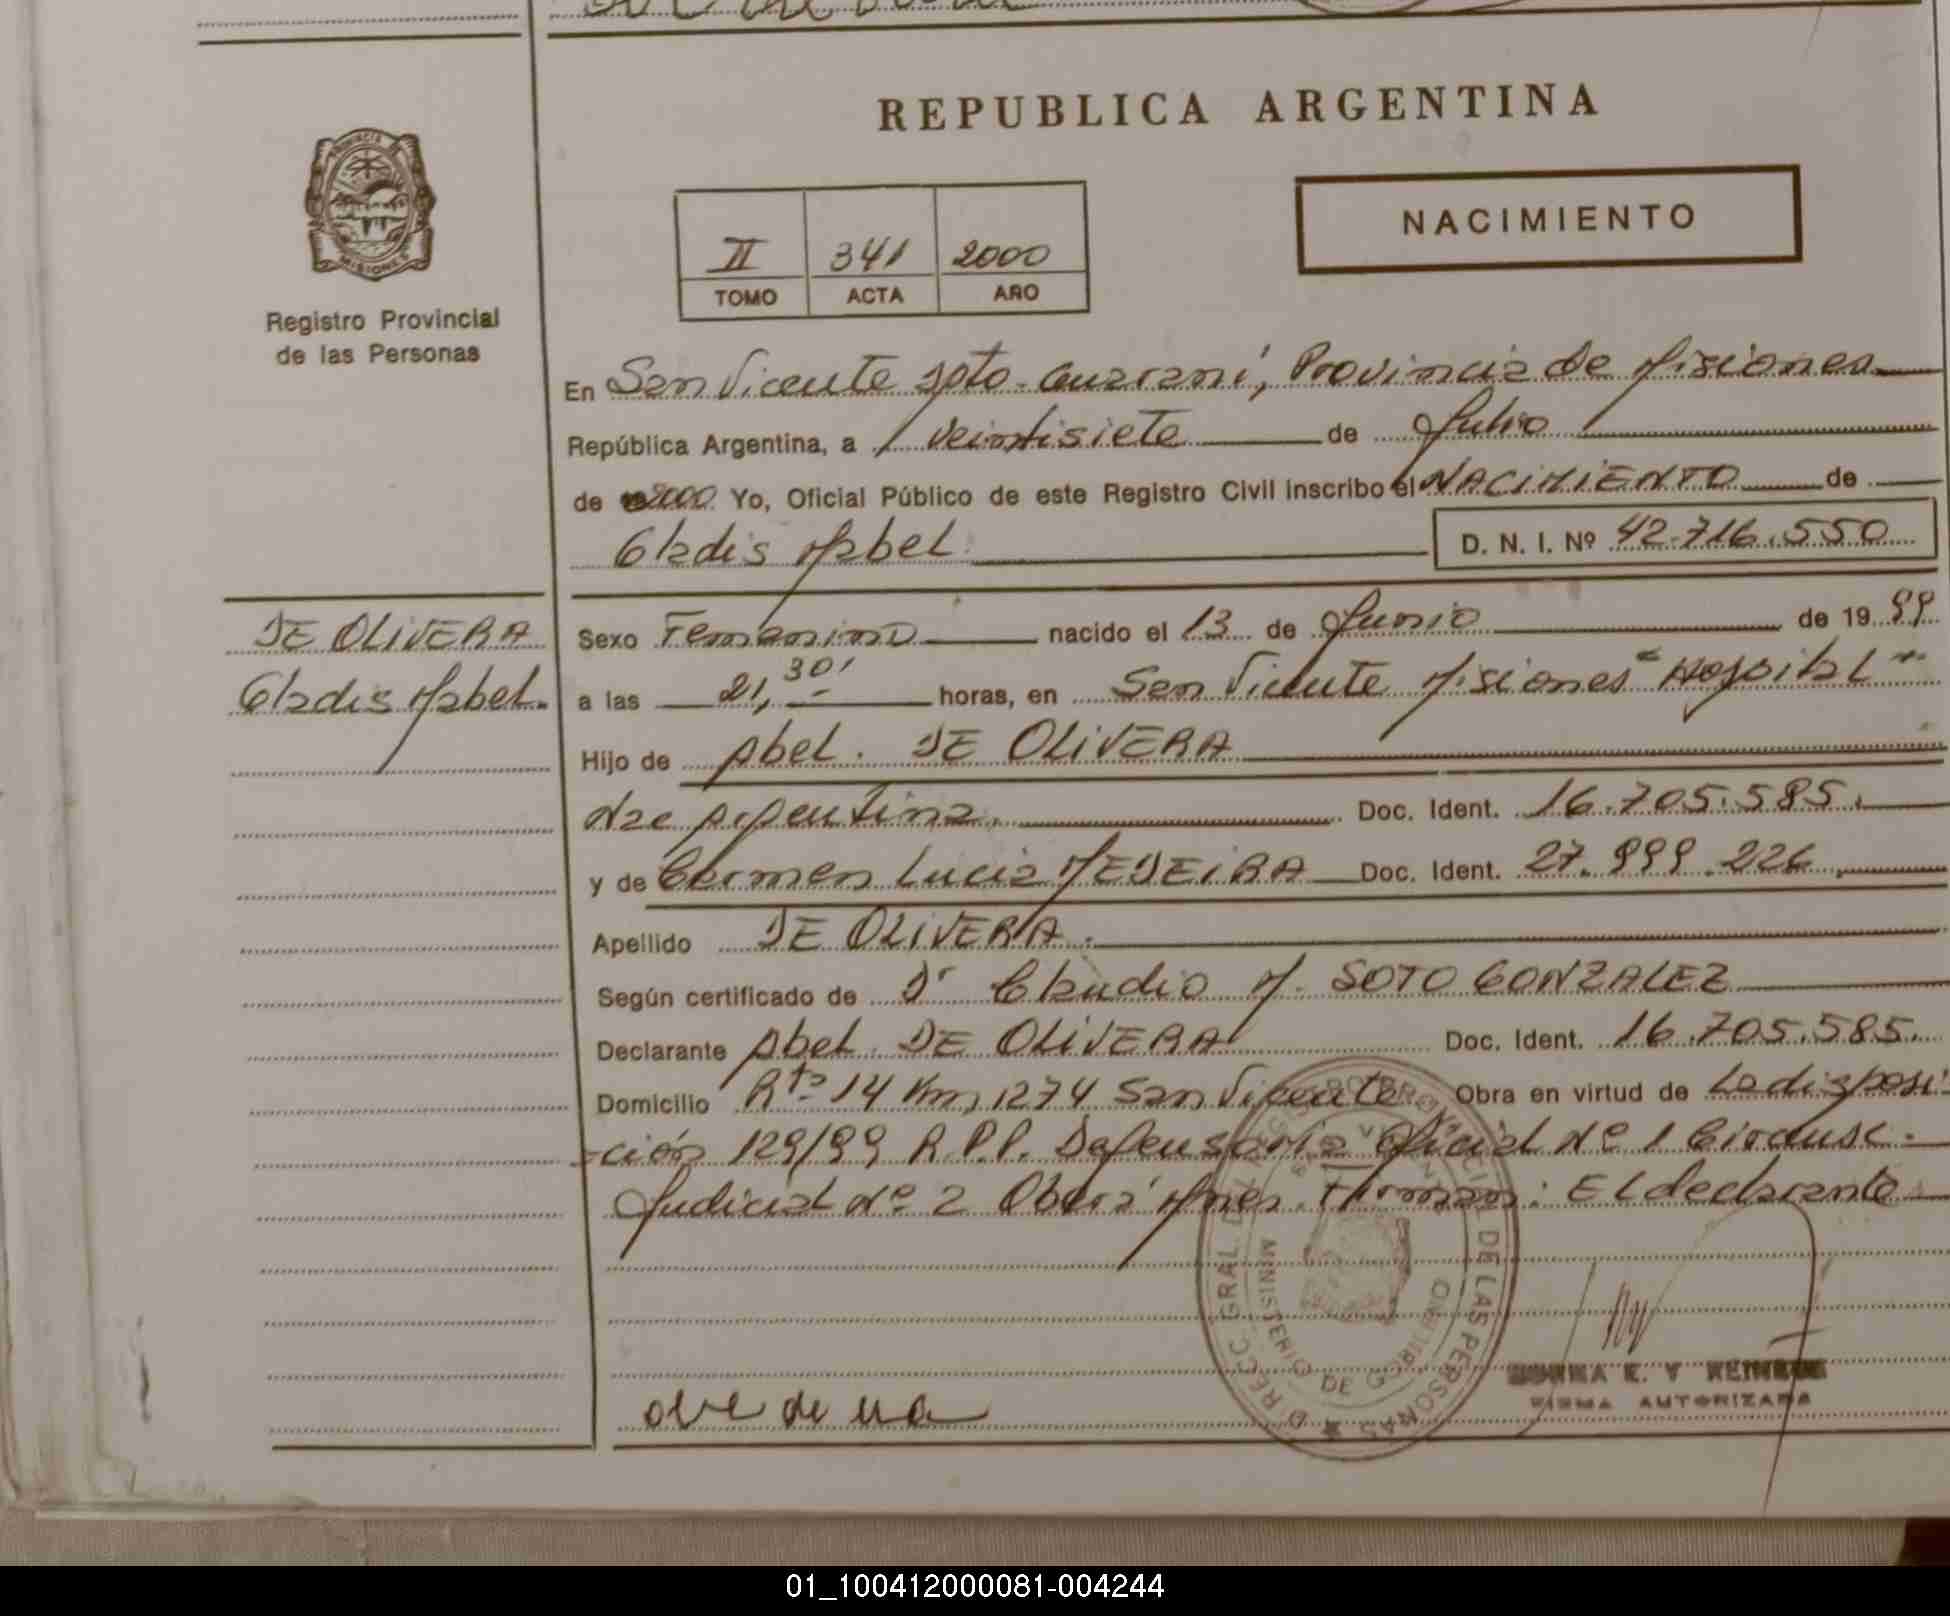 REPUBLICA ARGENTINA
PROVINCIA DE MISIONES
Registro Provincial
de las Personas
II 341 2000
TOMO ACTA AÑO
NACIMIENTO
En San Vicente Dpto. Guaraní, Provincia de Misiones
República Argentina, a veintisiete de Julio
de 2000 Yo, Oficial Público de este Registro Civil inscribo el NACIMIENTO de
Gladis Mabel. D. N. I. Nº 42.716.550
DE OLIVERA
Gladis Mabel.
Sexo Femenino nacido el 13 de Junio de 1999
a las 21,30' horas, en San Vicente Misiones "Hospital"
Hijo de Abel. DE OLIVERA
Nac Argentina. Doc. Ident. 16.705.585.
y de Carmen Lucia MEDEIRA Doc. Ident. 27.999.226.
Apellido DE OLIVERA.
Según certificado de Dr Claudio M. SOTO GONZALEZ
Declarante Abel. DE OLIVERA Doc. Ident. 16.705.585.
Domicilio Rta 14 Km 1274 San Vicente Obra en virtud de La disposi-
-ción 129/99 R.P.P. Defensoria Oficial Nº 1 Circunsc.
Judicial Nº 2 Oberá Mnes. Firman: El declarante
DE LAS PERSONAS
MINISTERIO DE GOBIERNO
FIRMA AUTORIZADA
01_100412000081-004244